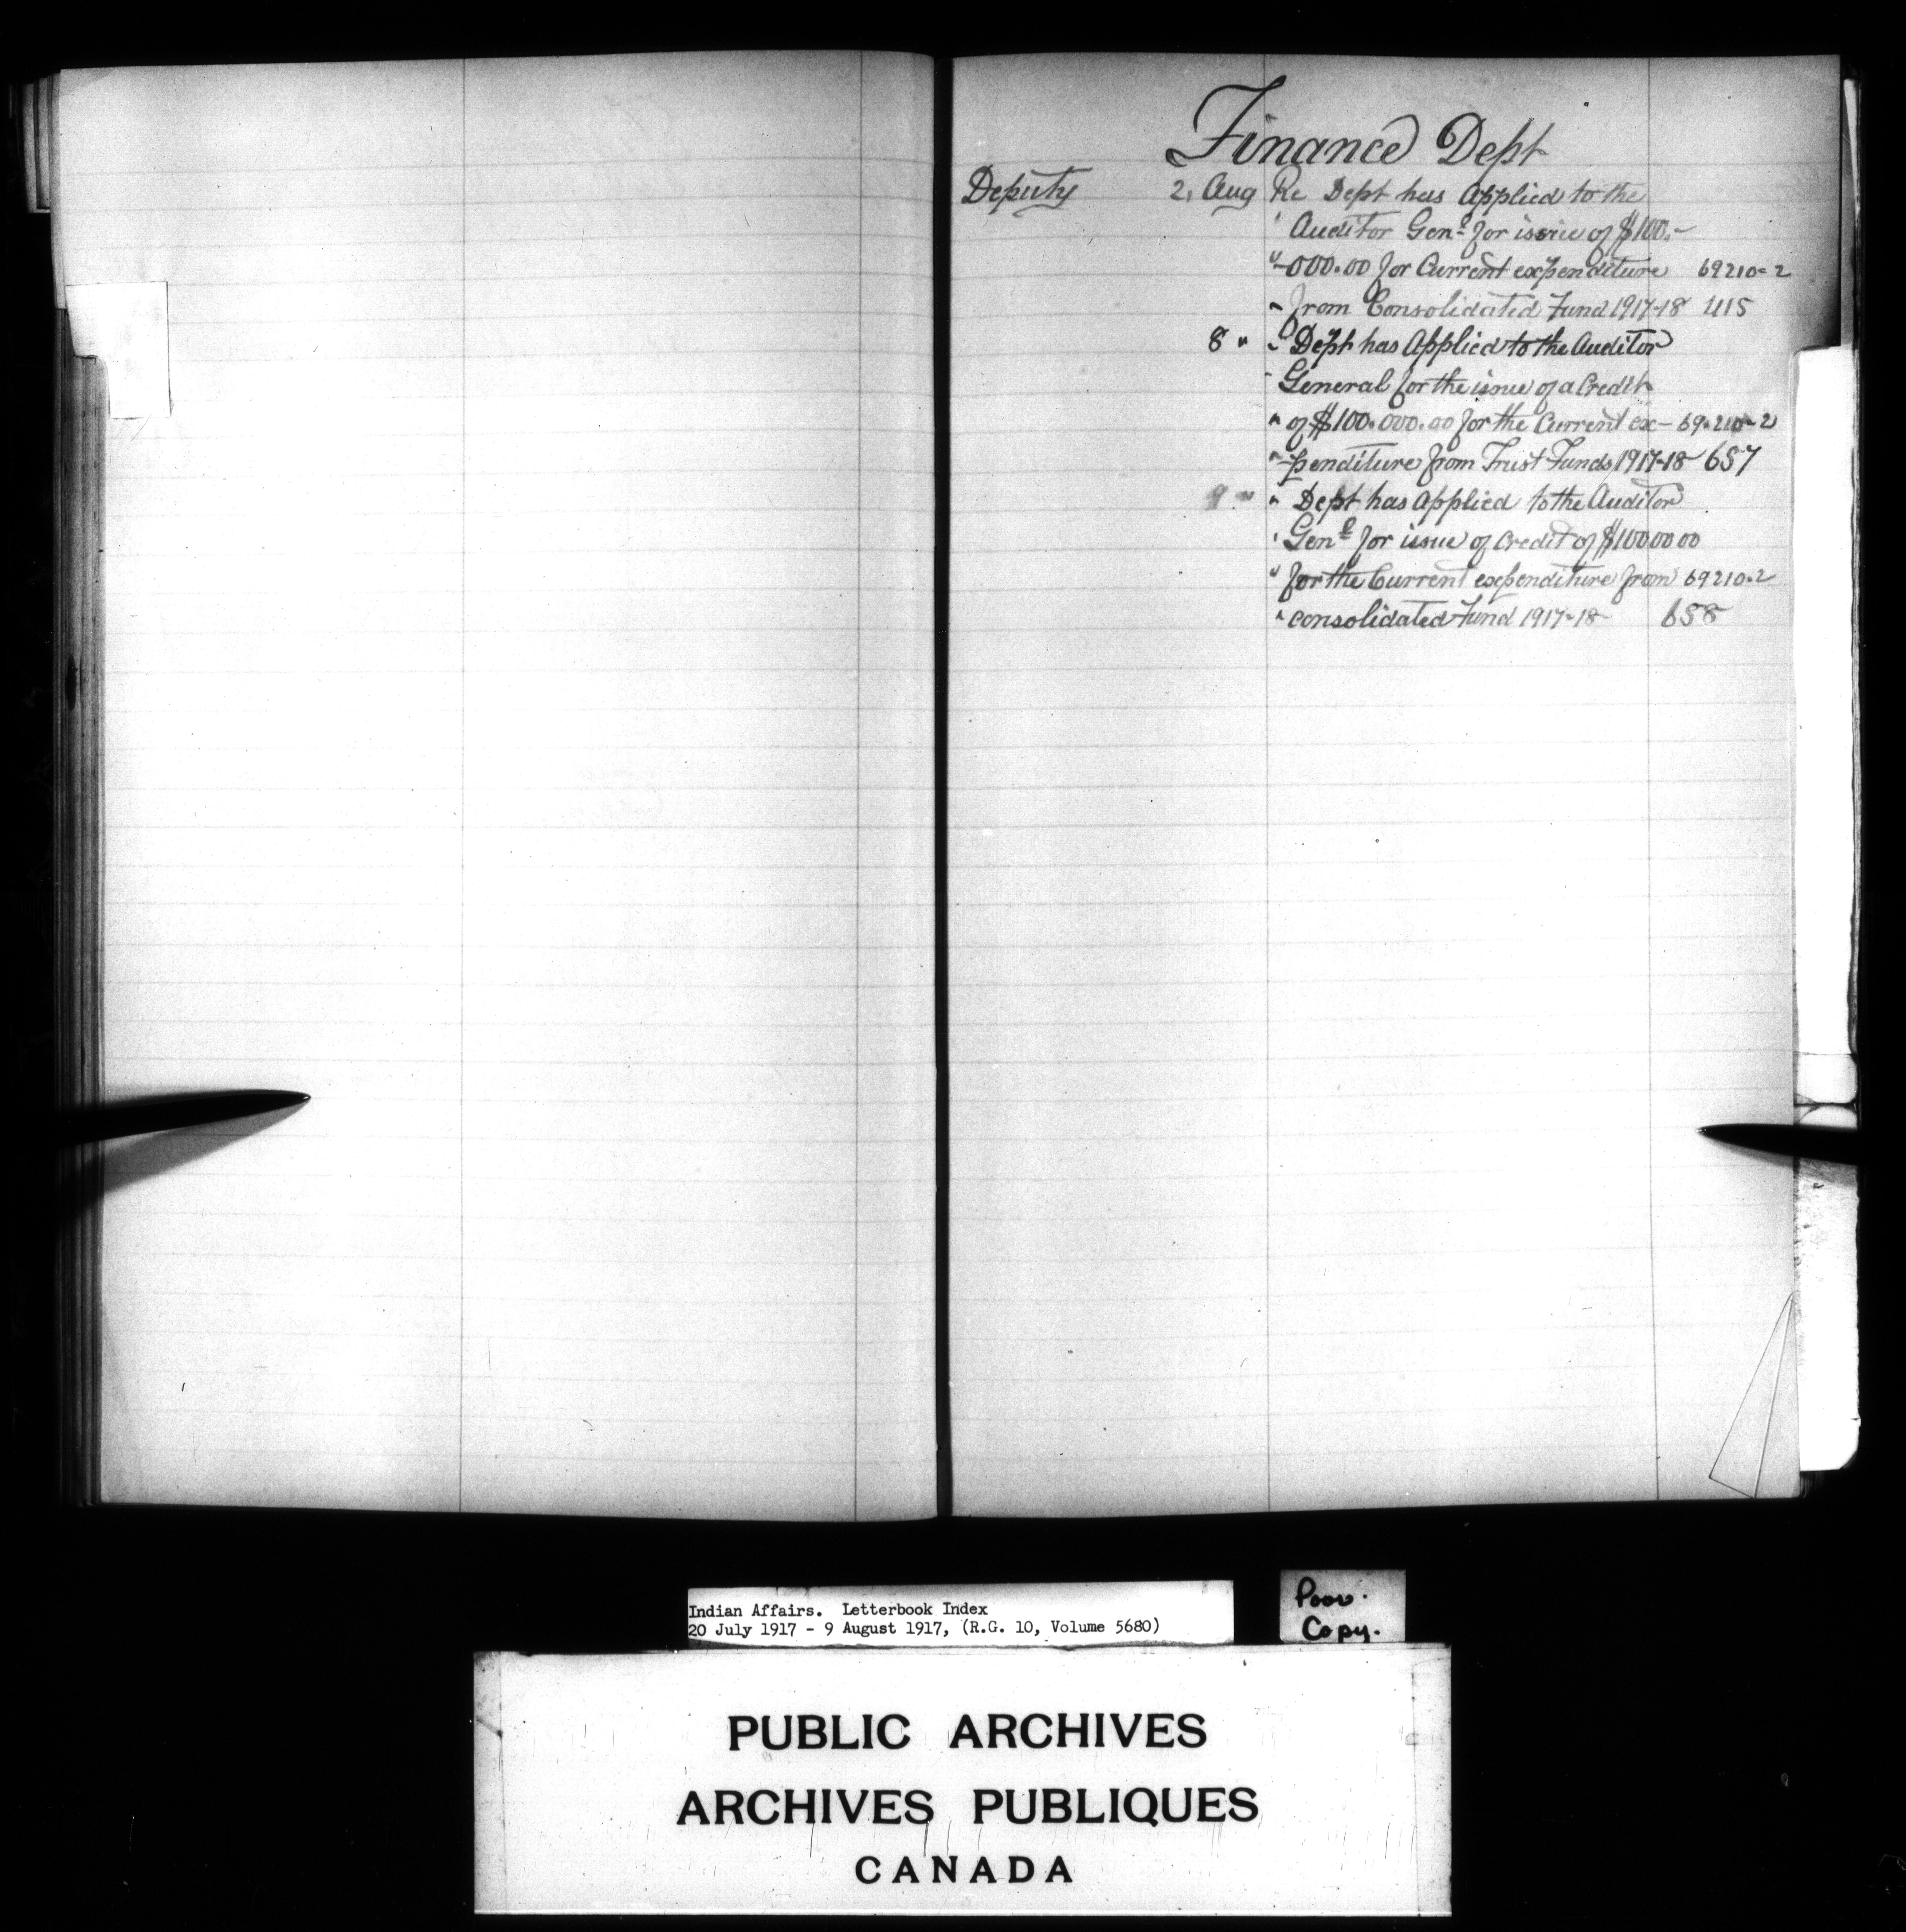 Finance Dept
Deputy 2, Aug Re Dept has Applied to the
' Auditor Genl for issue of $100.-
" -000.00 for Current expenditure 69210-2
" from Consolidated Fund 1917-18 415
8 " " Dept has Applied to the Auditor
" General for the issue of a Credit
" of $100.000.00 for the Current ex- 69.210-2
" -penditure from Trust Funds 1917-18 657
9 " " Dept has Applied to the Auditor
' Genl for issue of Credit of $1000000
" for the Current expenditure from 69210.2
" consolidated Fund 1917-18 658
Indian Affairs. Letterbook Index
20 July 1917 - 9 August 1917, (R.G. 10, Volume 5680)
Poor.
Copy.
PUBLIC ARCHIVES
ARCHIVES PUBLIQUES
CANADA